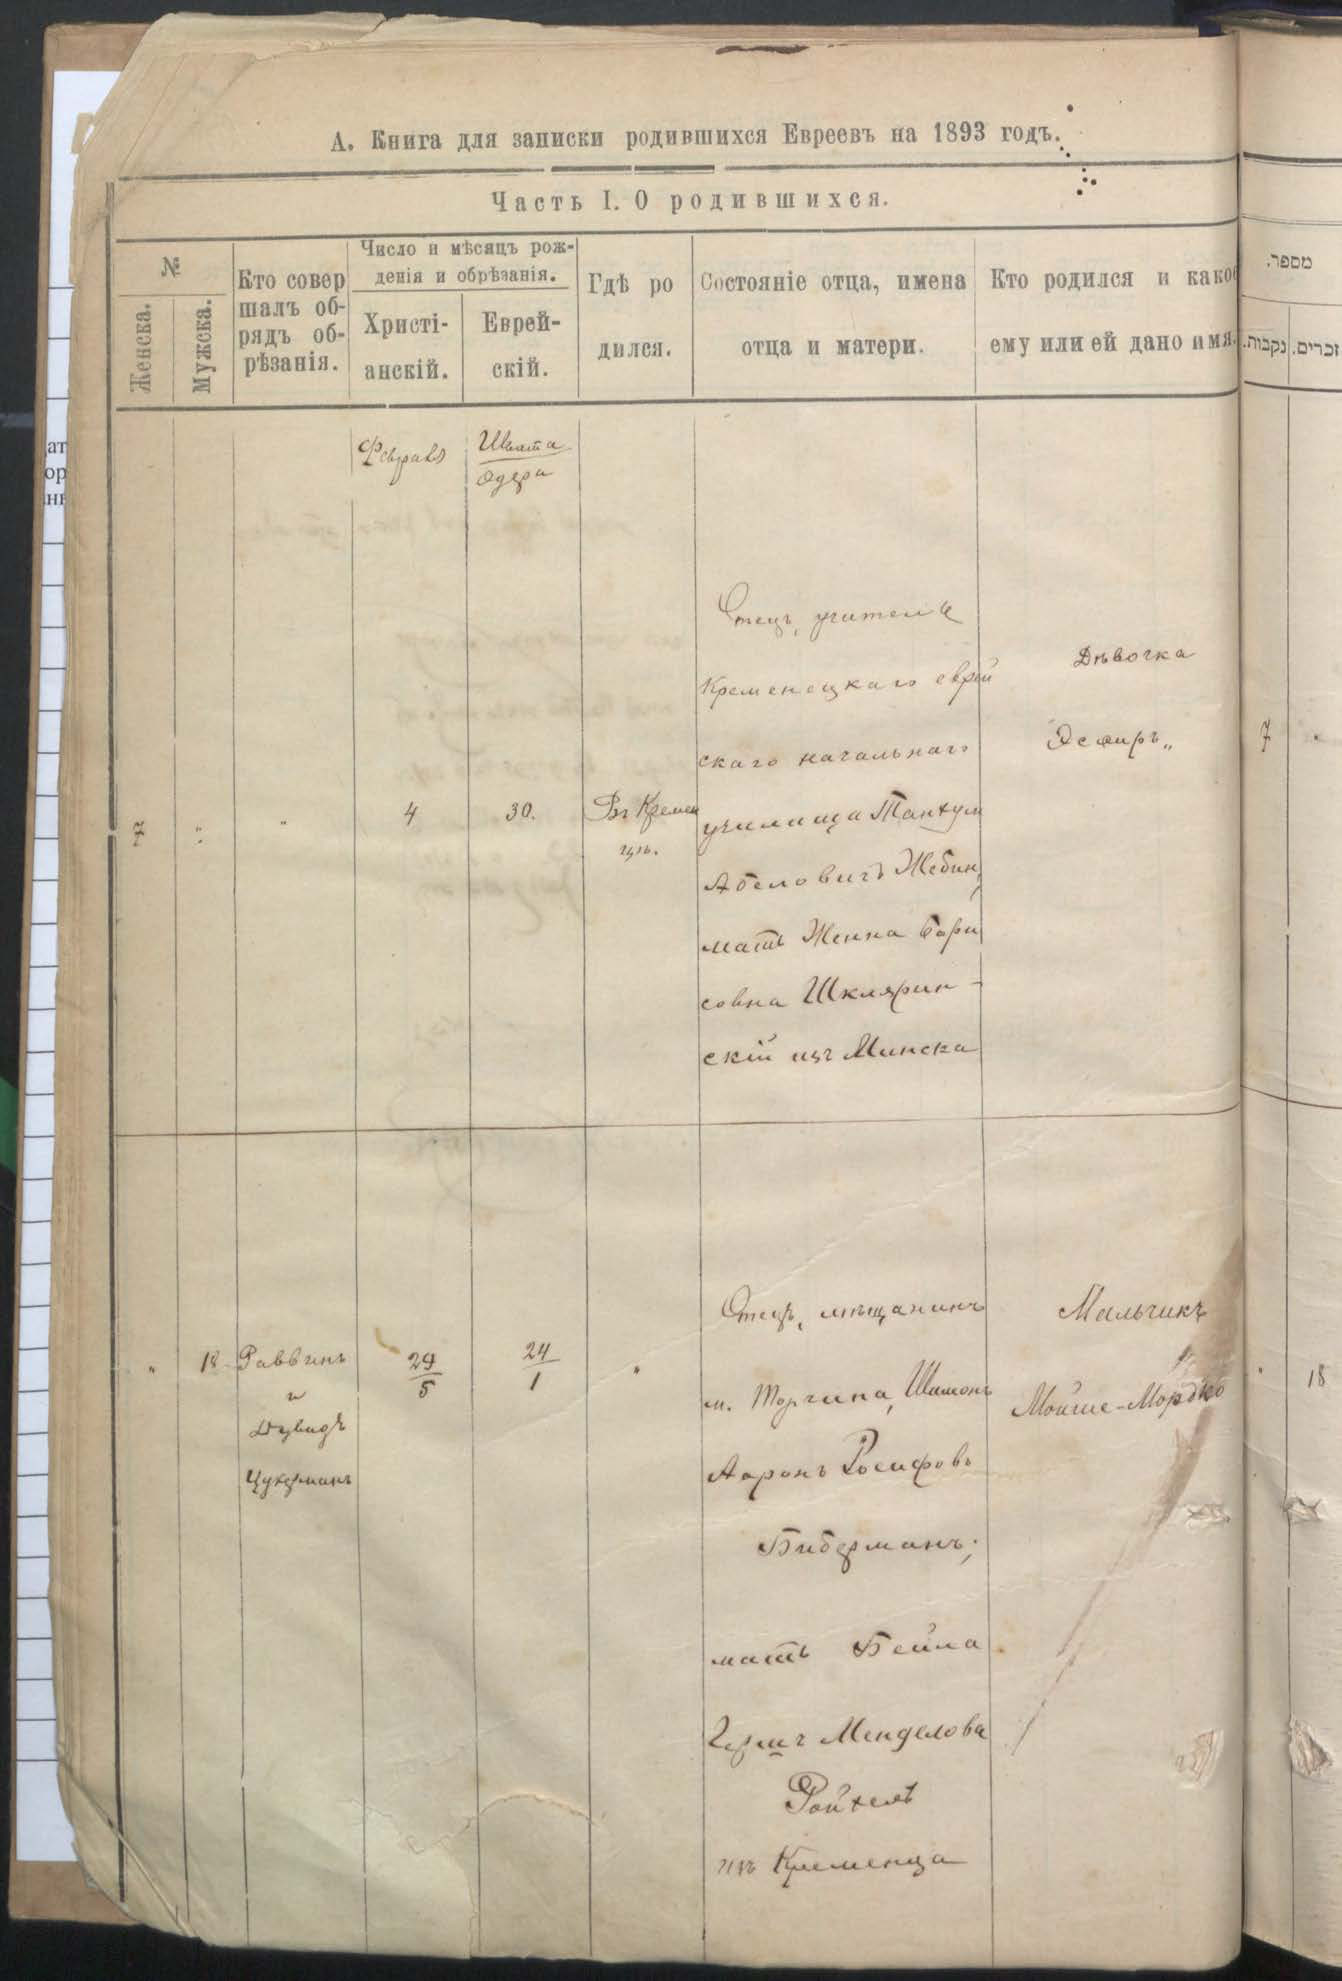 А. Книга для записки родившихся Евреевъ на 1893 годъ.
Часть I. О родившихся.
№
Женска.
Мужска.
Кто совер
шалъ об-
рядъ об-
рѣзанія.
Число и мѣсяцъ рож-
денія и обрѣзанія.
Христі-
анскій.
Еврей-
скій.
Гдѣ ро
дился.
Состояніе отца, имена
отца и матери.
Кто родился и какое
ему или ей дано имя.
מספר.
נקבות.
זכרים.
Шеата
Одера
4
30.
Въ Кремен
цѣ.
Отецъ, учитель
Кременецкаго еврей
скаго начальнаго
училища Танхум
Абеловичъ Жебин,
мать Женна Бори
совна Шклярин-
скій изъ Минска
Дѣвочка
Эсѳирь„
7
18
Раввинъ
и
Дувидъ
Цукерманъ
29
5
24
1
"
Отецъ, мѣщанинъ
м. Торчина, Шимонъ
Ааронъ Іосифовъ
Биберманъ;
мать Бейла
Гершъ Менделова
Ройхель
изъ Кременца
Мальчикъ
Мойше-Мордко
18